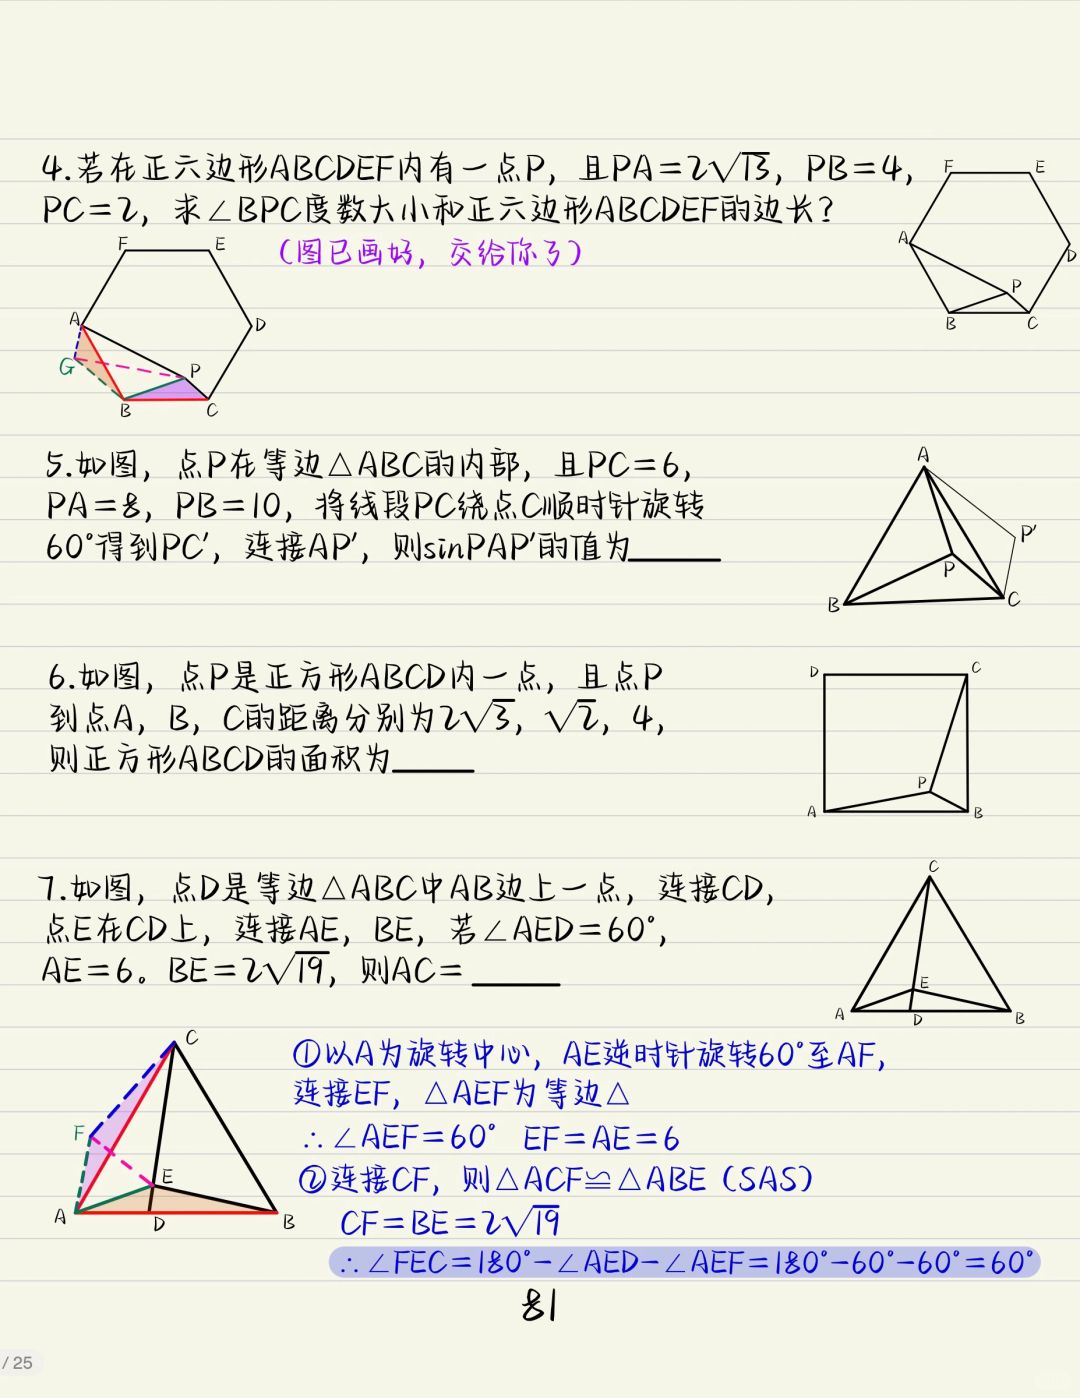 4.若在正六边形ABCDEF内有一点P，且PA=2√13，PB=4，
PC=2，求∠BPC度数大小和正六边形ABCDEF的边长？
（图已画好，交给你了）
F E
A D
P
B C
F E
A D
G P
B C
5.如图，点P在等边△ABC的内部，且PC=6，
PA=8，PB=10，将线段PC绕点C顺时针旋转
60°得到PC′，连接AP′，则sinPAP′的值为______
A
P′
P
B C
6.如图，点P是正方形ABCD内一点，且点P
到点A，B，C的距离分别为2√3，√2，4，
则正方形ABCD的面积为______
D C
P
A B
7.如图，点D是等边△ABC中AB边上一点，连接CD，
点E在CD上，连接AE，BE，若∠AED=60°，
AE=6。BE=2√19，则AC=______
C
E
A D B
C
F
E
A D B
①以A为旋转中心，AE逆时针旋转60°至AF，
连接EF，△AEF为等边△
∴∠AEF=60° EF=AE=6
②连接CF，则△ACF≌△ABE（SAS）
CF=BE=2√19
∴∠FEC=180°-∠AED-∠AEF=180°-60°-60°=60°
81
/ 25